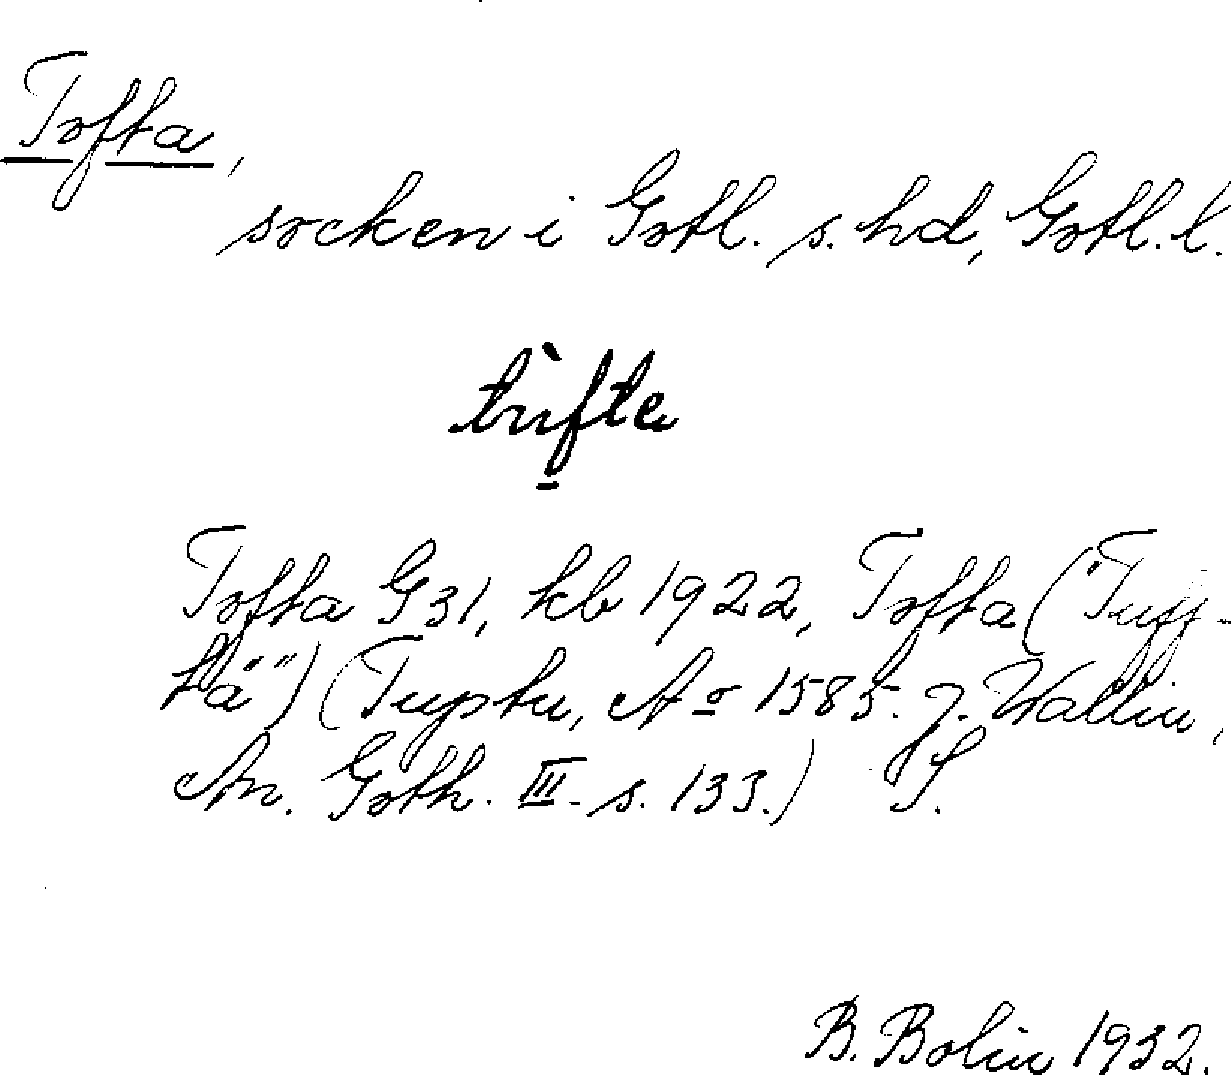 Tofta,
socken i Gotl. s. hd, Gotl. l.
tùfte
Tofta G 31, kb 1922, Tofta ("Tuff-
tä") (Tuptu, Ao 1585. J. Wallin,
An. Goth. III. s. 133.) S.
B. Bolin 1932.